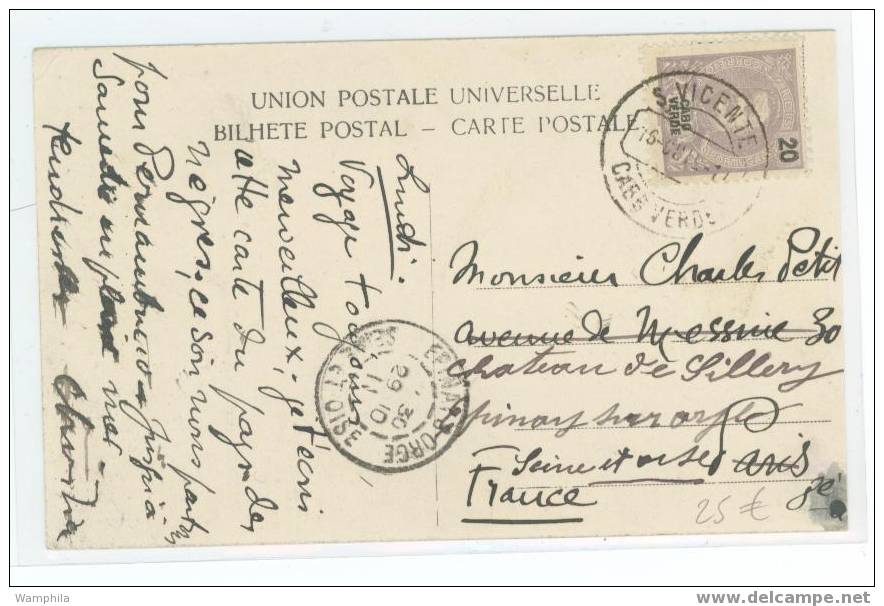 UNION POSTALE UNIVERSELLE
BILHETE POSTAL – CARTE POSTALE
CABO
VERDE
20
S. VICENTE
16-
CABO VERDE
Lundi.
Voyage toujours
merveilleux, je t'écris
cette carte du pays des
nègres, ce soir nous partons
pour Pernambuco jusqu'à
Samedi en plein mer -
tendresses
Monsieur Charles Petit
avenue de Messine 30
chateau de Sillery
Epinay sur orge
Seine et oise Paris
France
EPINAY-S-ORGE
30
29 10
SEINE ET OISE
25 €
Wamphila
www.delcampe.net